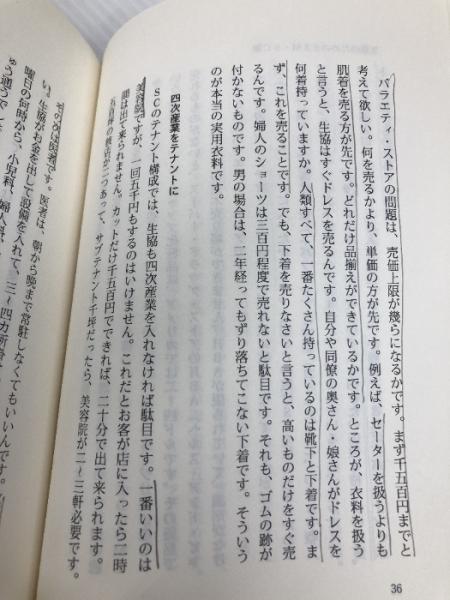 バラエティ・ストアの問題は、売価上限が幾らになるかです。まず千五百円までと
考えて欲しい。何を売るかより、単価の方が先です。例えば、セーターを扱うよりも
肌着を売る方が先です。どれだけ品揃えができているかです。ところが、衣料を扱う
と言うと、生協はすぐドレスを売るんです。自分や同僚の奥さん・娘さんがドレスを
何着持っていますか。人類すべて、一番たくさん持っているのは靴下と下着です。ま
ず、これを売ることです。でも、下着を売りなさいと言うと、高いものだけをすぐ売
るんです。婦人のショーツは三百円程度で売れないと駄目です。それも、ゴムの跡が
付かないものです。男の場合は、二年経ってもずり落ちてこない下着です。そういう
のが本当の実用衣料です。
四次産業をテナントに
SCのテナント構成では、生協も四次産業を入れなければ駄目です。一番いいのは
美容院ですが、一回五千円もするのはいけません。これだとお客が店に入ったら二時
間は出て来られません。カットだけ千五百円でできれば、二十分で出て来られます。
の核店が二つあって、サブテナント千坪だったら、美容院が二〜三軒必要です。
医者です。医者は、朝から晩まで常駐しなくてもいいんです。
生協がお金を出して設備を入れて、三〜四カ所
曜日の何時から、小児科、婦人科
36